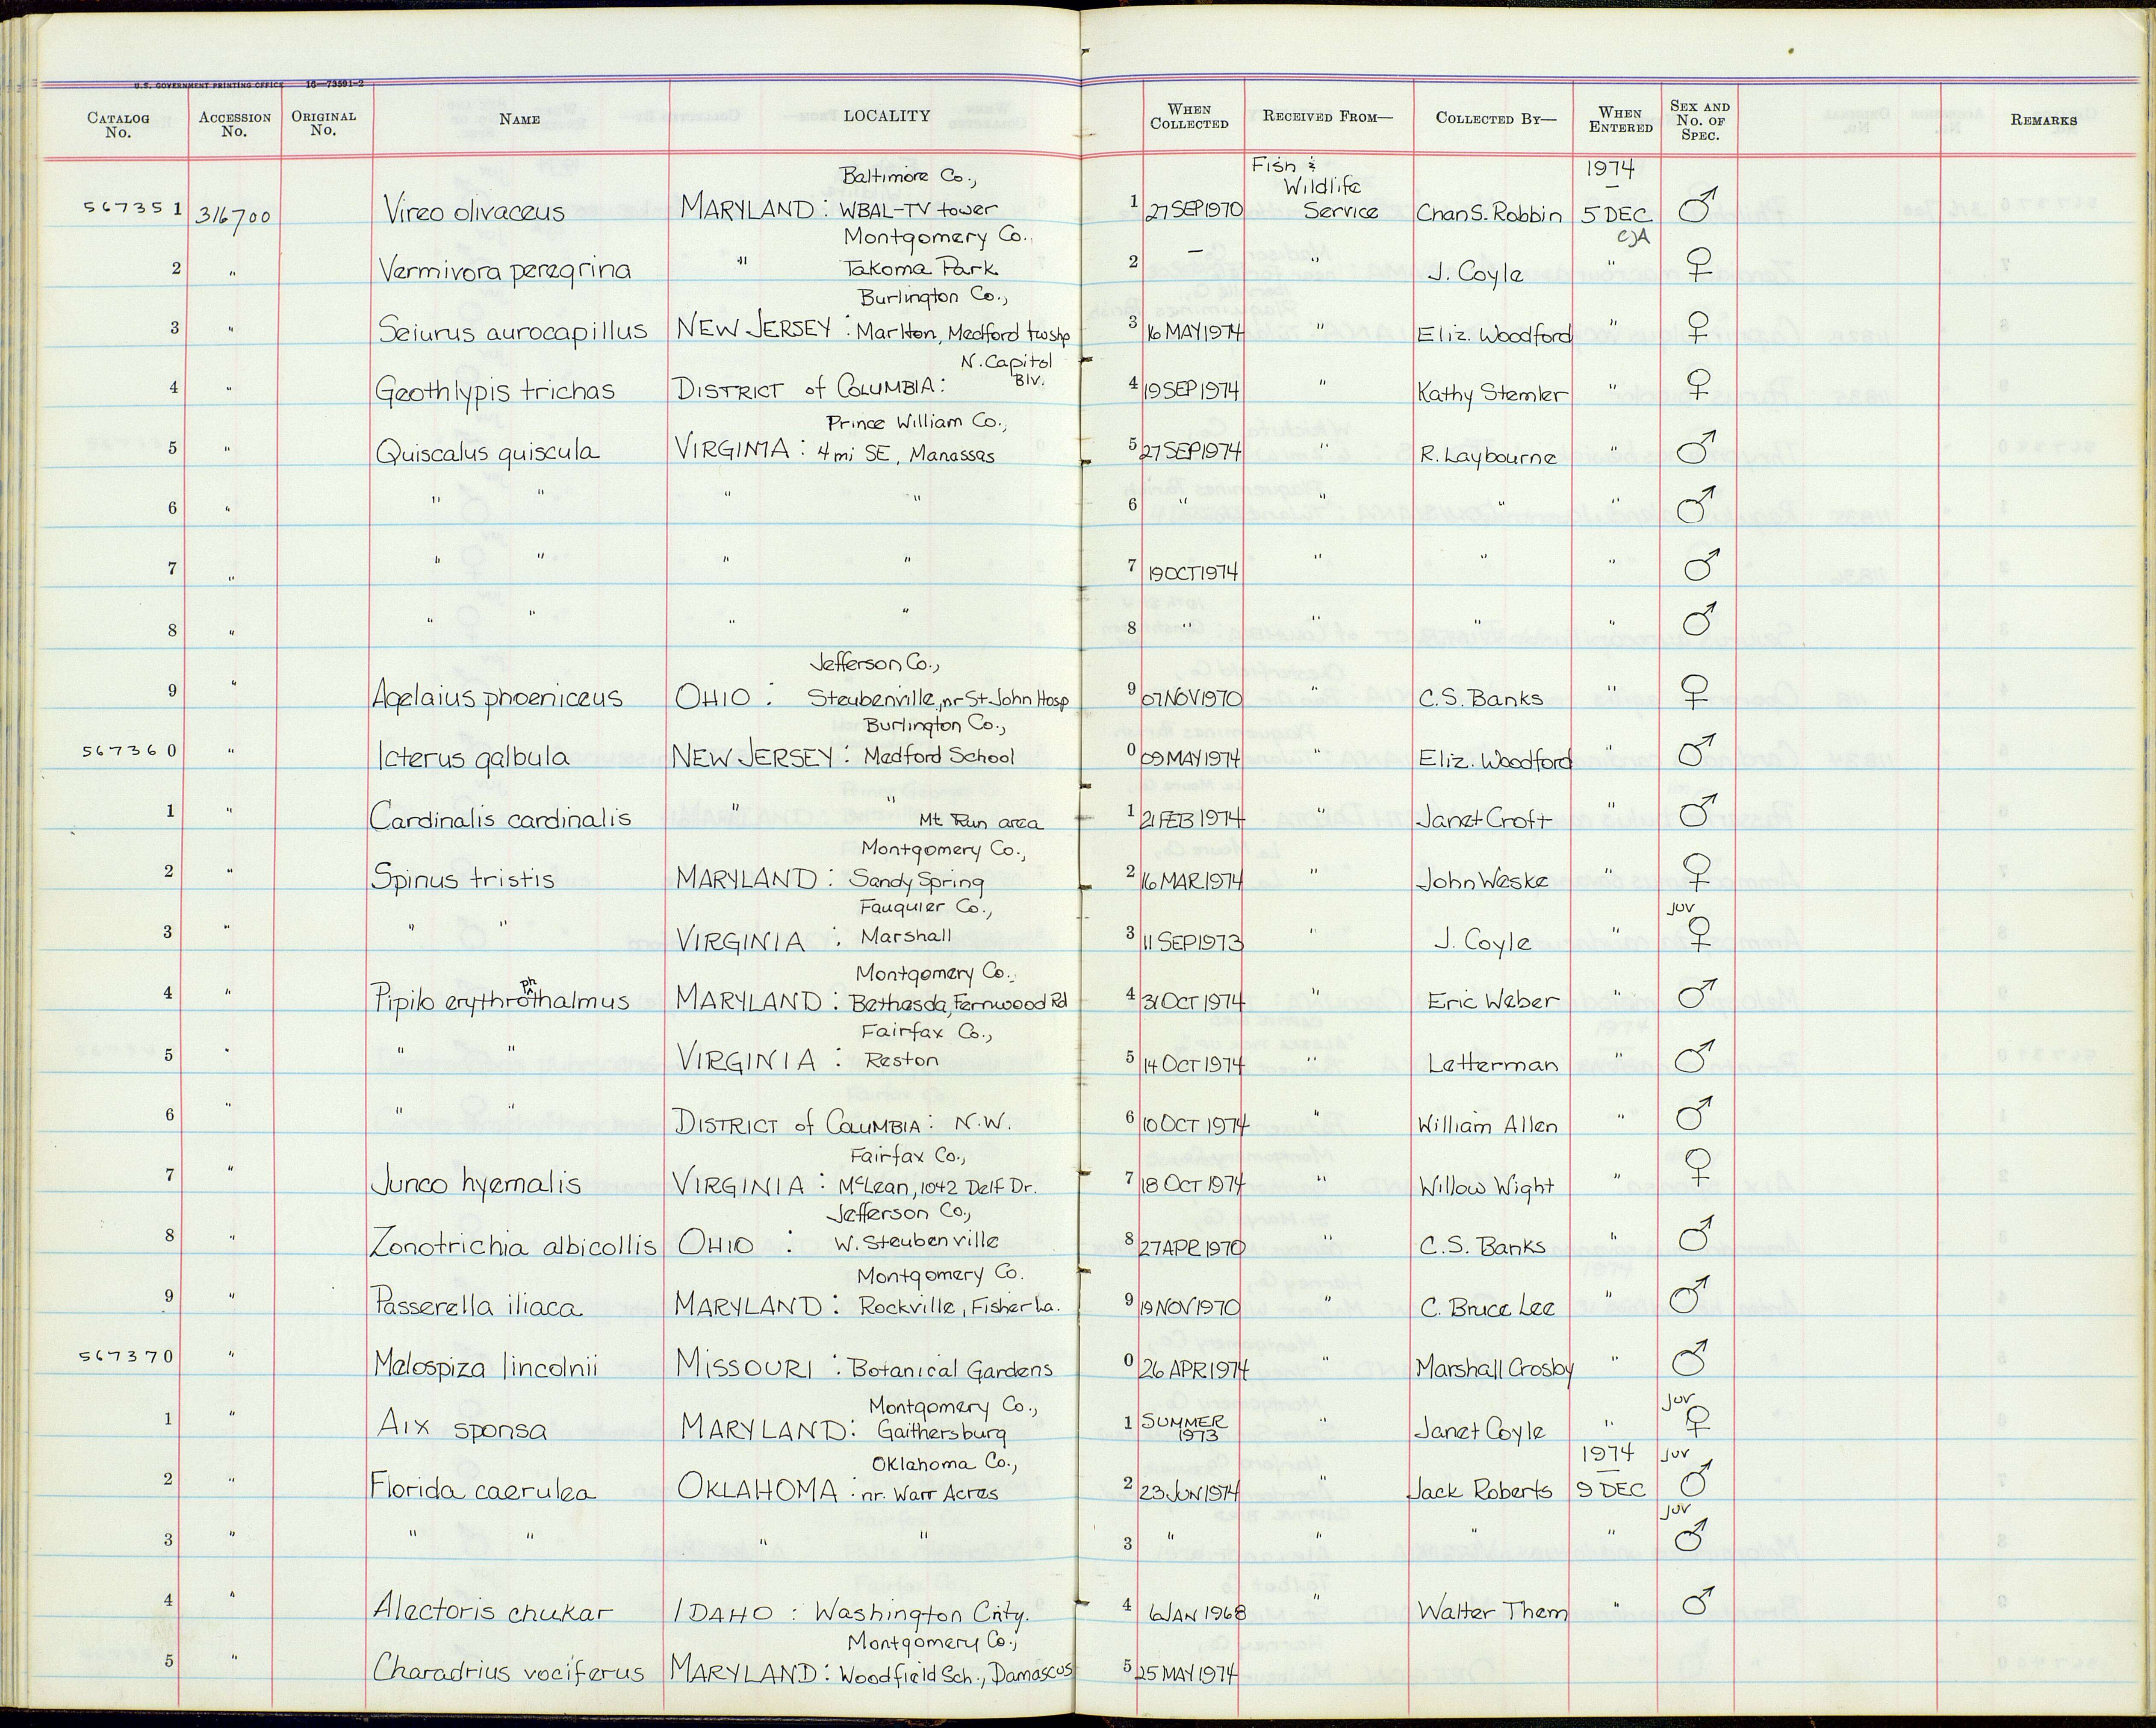 U.S. GOVERNMENT PRINTING OFFICE 16—73591-2
CATALOG No. ACCESSION No. ORIGINAL No. NAME LOCALITY WHEN COLLECTED RECEIVED FROM— COLLECTED BY— WHEN ENTERED SEX AND No. OF SPEC. REMARKS
Baltimore Co., Fish & Wildlife 1974
567351 316700 Vireo olivaceus MARYLAND : WBAL-TV tower 1 27SEP1970 Service Chan S. Robbin 5 DEC ♂
Montgomery Co.,
2 " Vermivora peregrina " Takoma Park 2 — " J. Coyle " ♀
Burlington Co.,
3 " Seiurus aurocapillus NEW JERSEY : Marlton, Medford twshp 3 16MAY1974 " Eliz. Woodford " ♀
N. Capitol Blv.
4 " Geothlypis trichas DISTRICT of COLUMBIA: 4 19SEP1974 " Kathy Stemler " ♀
Prince William Co.,
5 " Quiscalus quiscula VIRGINIA : 4mi SE, Manassas 5 27SEP1974 " R. Laybourne " ♂
6 " " " " " 6 " " " " ♂
7 " " " " " 7 19OCT1974 " " " ♂
8 " " " " " 8 " " " " ♂
Jefferson Co.,
9 " Agelaius phoeniceus OHIO : Steubenville, nr St John Hosp 9 07NOV1970 " C.S. Banks " ♀
Burlington Co.,
567360 " Icterus galbula NEW JERSEY : Medford School 0 09MAY1974 " Eliz. Woodford " ♂
1 " Cardinalis cardinalis " " Mt Run area 1 21FEB1974 " Janet Croft " ♂
Montgomery Co.,
2 " Spinus tristis MARYLAND : Sandy Spring 2 16MAR1974 " John Weske " ♀
Fauquier Co., Juv
3 " " " VIRGINIA : Marshall 3 11SEP1973 " J. Coyle " ♀
Montgomery Co.,
4 " Pipilo erythrophthalmus MARYLAND : Bethesda, Fernwood Rd 4 31OCT1974 " Eric Weber " ♂
Fairfax Co.,
5 " " " VIRGINIA : Reston 5 14OCT1974 " Letterman " ♂
6 " " " DISTRICT of COLUMBIA : N.W. 6 10OCT1974 " William Allen " ♂
Fairfax Co.,
7 " Junco hyemalis VIRGINIA : McLean, 1042 Delf Dr. 7 18OCT1974 " Willow Wight " ♀
Jefferson Co.,
8 " Zonotrichia albicollis OHIO : W. Steubenville 8 27APR1970 " C.S. Banks " ♂
Montgomery Co.
9 " Passerella iliaca MARYLAND : Rockville, Fisher La. 9 19NOV1970 " C. Bruce Lee " ♂
567370 " Melospiza lincolnii MISSOURI : Botanical Gardens 0 26APR1974 " Marshall Crosby " ♂
Montgomery Co., Juv
1 " Aix sponsa MARYLAND : Gaithersburg 1 SUMMER 1973 " Janet Coyle " ♀
Oklahoma Co., 1974 Juv
2 " Florida caerulea OKLAHOMA : nr. Warr Acres 2 23JUN1974 " Jack Roberts 9 DEC ♂
Juv
3 " " " " " 3 " " " " ♂
4 " Alectoris chukar IDAHO : Washington Cnty. 4 6JAN1968 " Walter Them " ♂
Montgomery Co.,
5 " Charadrius vociferus MARYLAND : Woodfield Sch., Damascus 5 25MAY1974